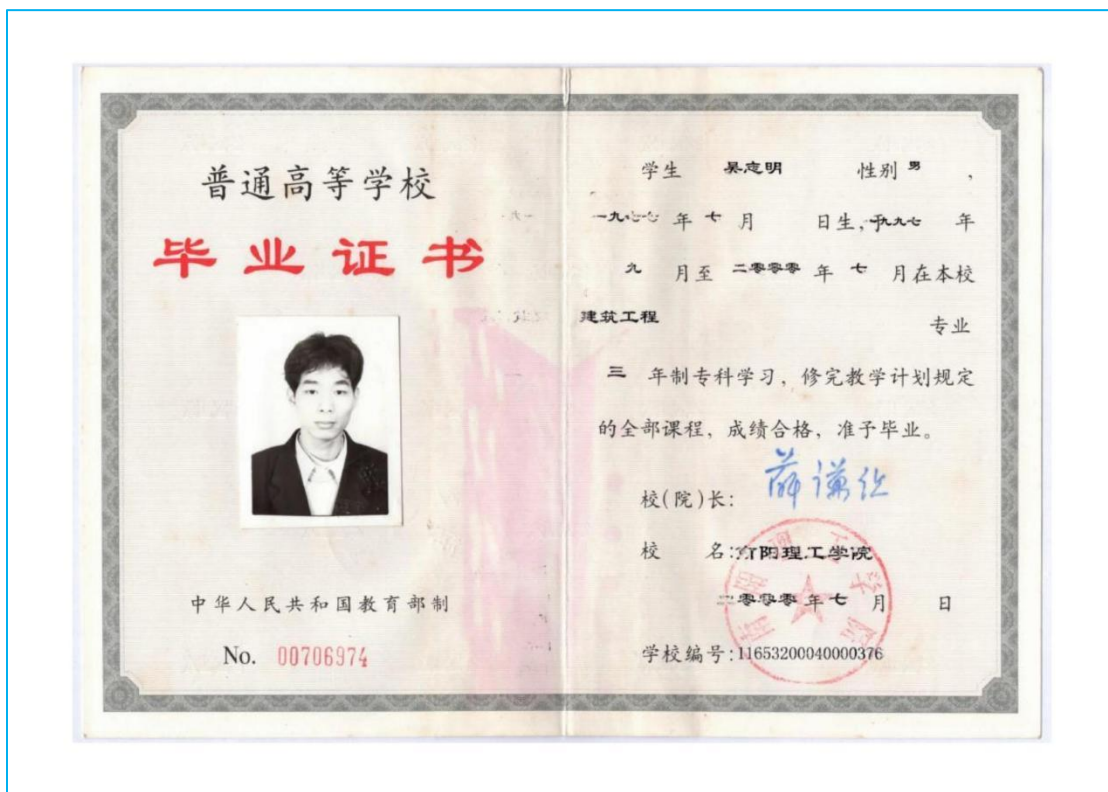 普通高等学校
毕业证书
中华人民共和国教育部制
No. 00706974
学生 吴志明 性别 男 ,
一九七七 年 七 月 日生,于 九九七 年
九 月至 二零零零 年 七 月在本校
建筑工程 专业
三 年制专科学习, 修完教学计划规定
的全部课程, 成绩合格, 准予毕业。
校(院)长:
校 名: 南阳理工学院
二零零零 年 七 月 日
学校编号: 11653200040000376
南阳理工学院